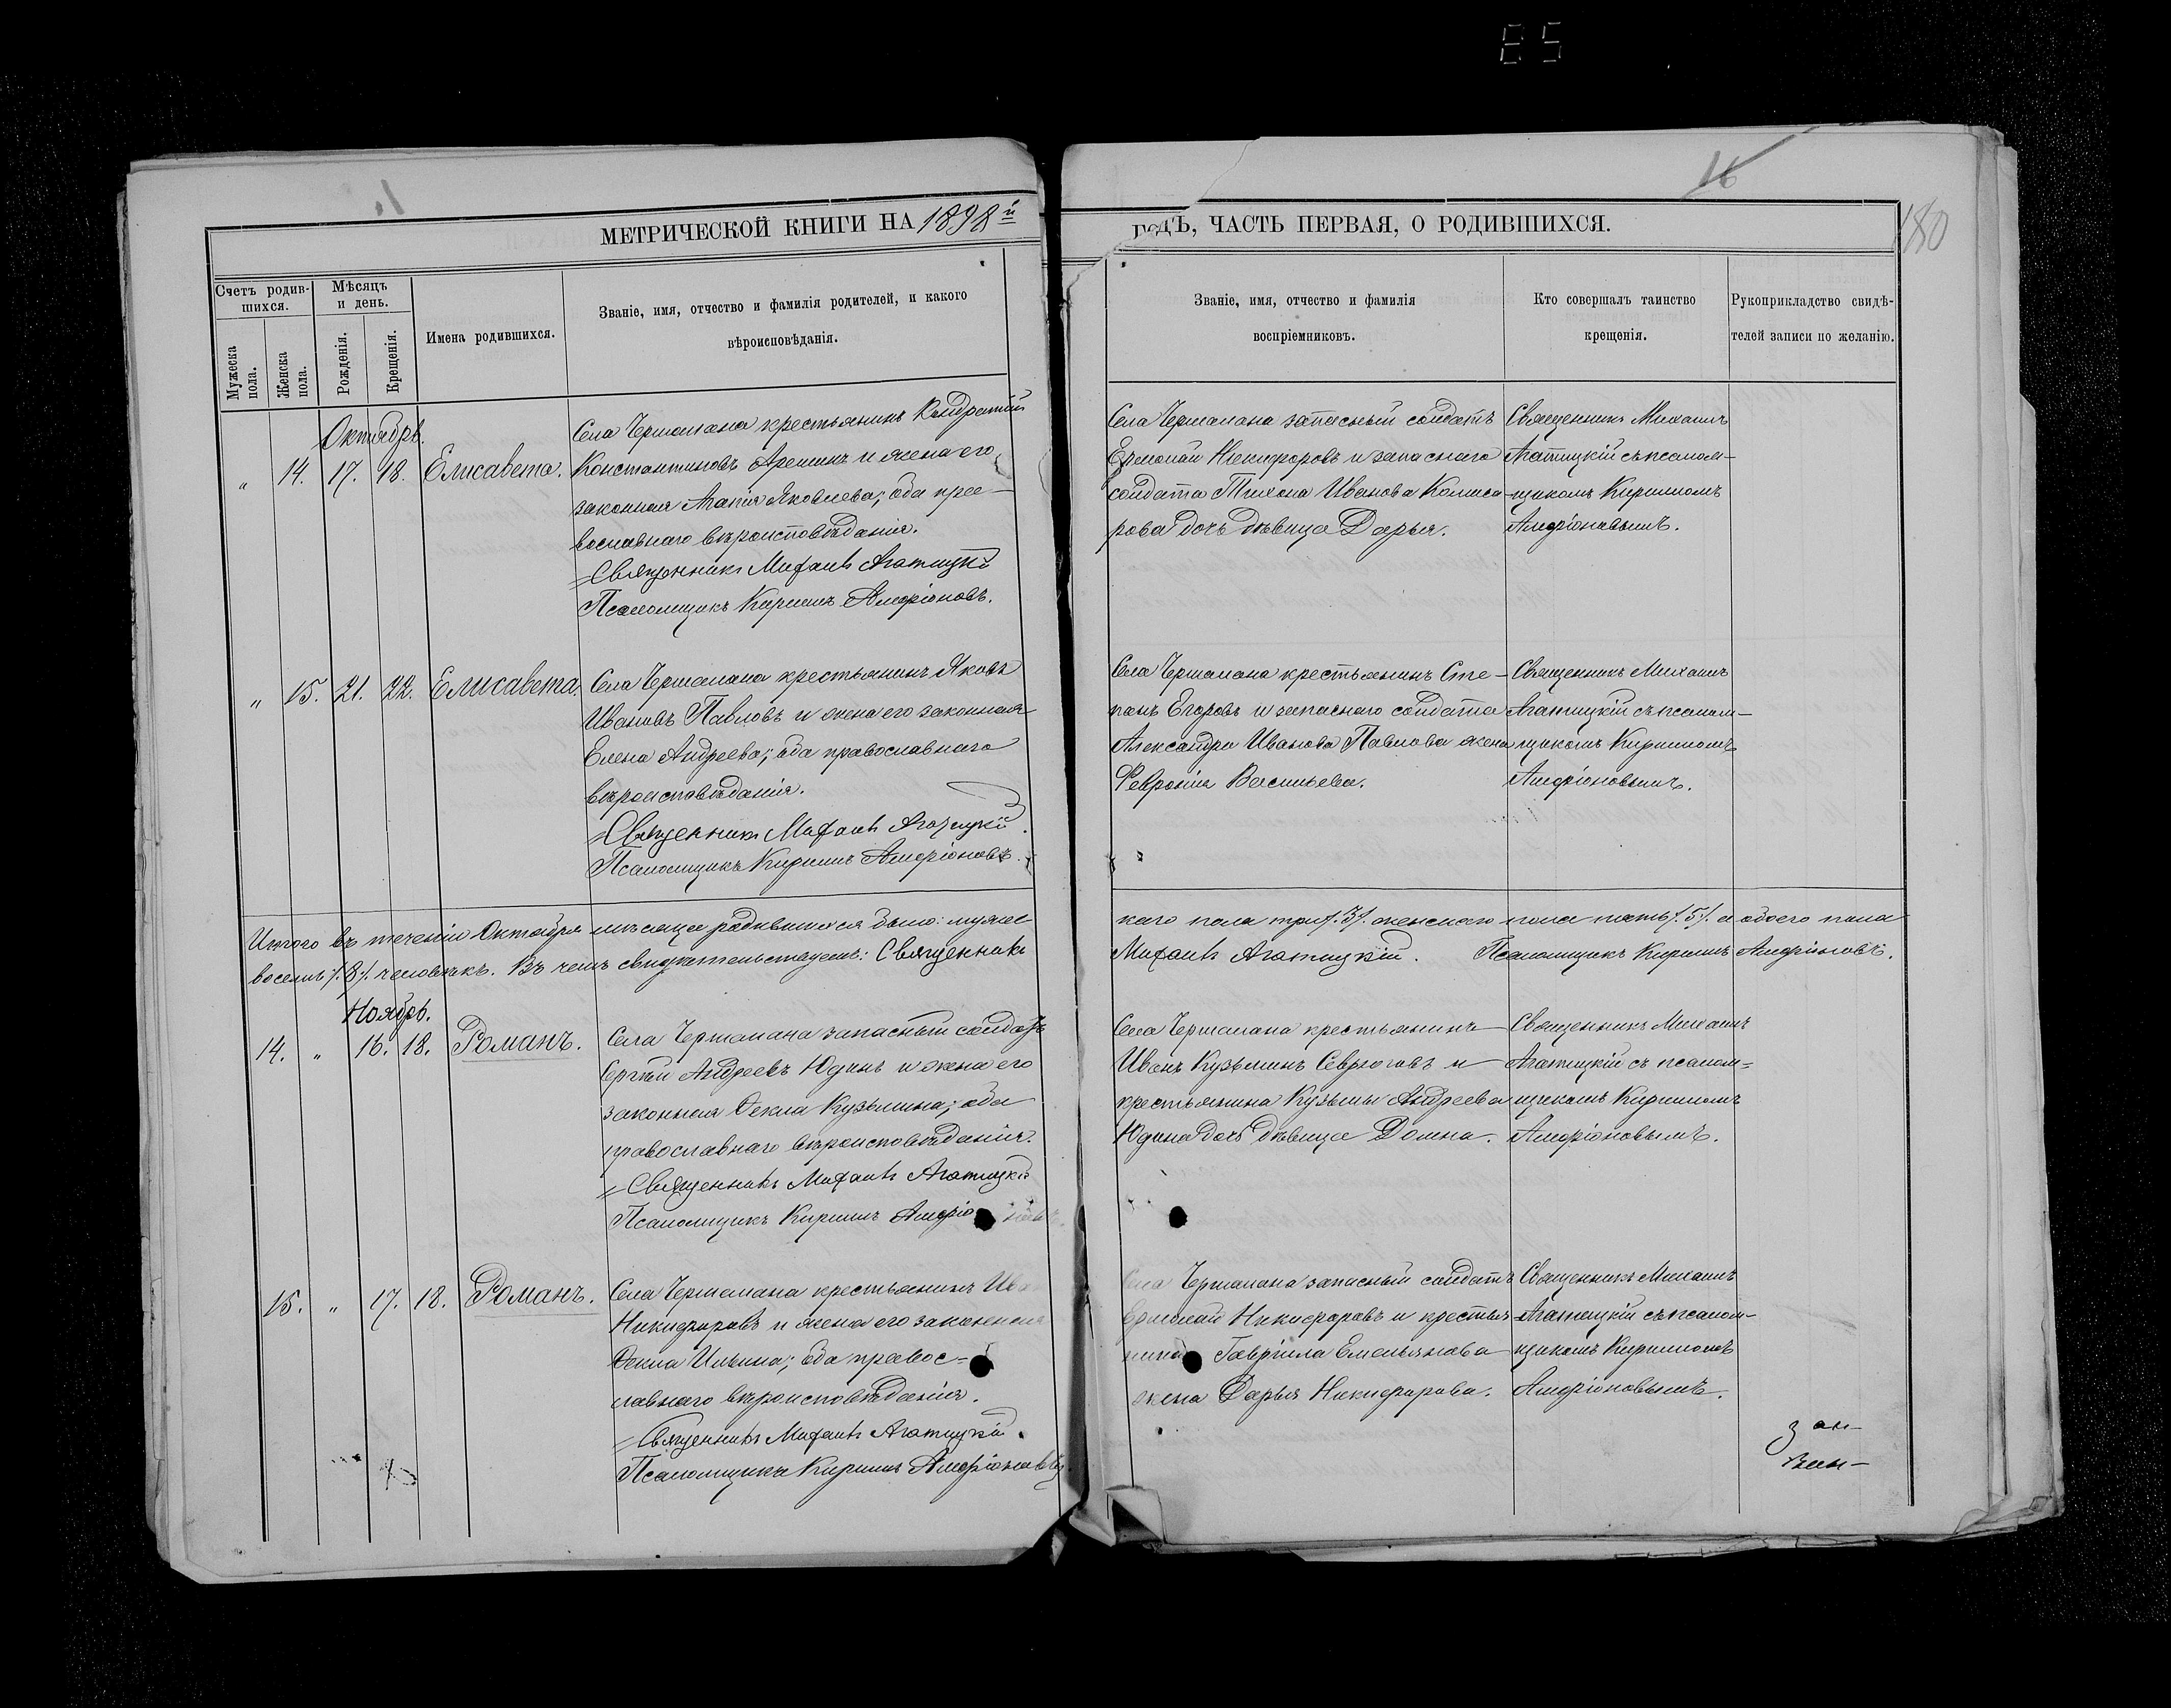 16
180
МЕТРИЧЕСКОЙ КНИГИ НА 1898й
ГОДЪ, ЧАСТЬ ПЕРВАЯ, О РОДИВШИХСЯ.
Счетъ родив-
шихся.
Мужеска
пола.
Женска
пола.
Мѣсяцъ
и день.
Рожденія.
Крещенія.
Имена родившихся.
Званіе, имя, отчество и фамилія родителей, и какого
вѣроисповѣданія.
Званіе, имя, отчество и фамилія
воспріемниковъ.
Кто совершалъ таинство
крещенія.
Рукоприкладство свидѣ-
телей записи по желанію.
Октябрь.
" 14. 17. 18. Елисавета.
Села крестьянинъ Кондратій
Константиновъ и жена его
законная Яковлева; оба пра-
вославнаго вѣроисповѣданія.
Священникъ Михаилъ Агатицкій
Псаломщикъ Кириллъ Амфріоновъ.
Села запасный солдатъ
Ермолай Никифоровъ и запаснаго
солдата Тихона Иванова Комиса-
рова дочь дѣвица Дарья.
Священникъ Михаилъ
Агатицкій съ псалом-
щикомъ Кирилломъ
Амфріоновымъ.
" 15. 21. 22. Елисавета.
Села крестьянинъ Яковъ
Ивановъ Павловъ и жена его законная
Елена Андреева; оба православнаго
вѣроисповѣданія.
Священникъ Михаилъ Агатицкій
Псаломщикъ Кириллъ Амфріоновъ.
Села крестьянинъ Сте-
панъ Егоровъ и запаснаго солдата
Александра Иванова Павлова жена
Февронія Васильева.
Священникъ Михаилъ
Агатицкій съ псалом-
щикомъ Кирилломъ
Амфріоновымъ.
Итого въ теченіи Октября мѣсяца родившихся было: мужес-
каго пола три /.3/. женскаго пола пять /.5/. а обоего пола
восемь /.8/. человѣкъ. Въ чемъ свидѣтельствуемъ: Священникъ
Михаилъ Агатицкій. Псаломщикъ Кириллъ Амфріоновъ.
Ноябрь.
14. " 16. 18. Романъ.
Села запасный солдатъ
Сергѣй Андреевъ Юдинъ и жена его
законная Ѳекла Кузьмина; оба
православнаго вѣроисповѣданія.
Священникъ Михаилъ Агатицкій
Псаломщикъ Кириллъ Амфріоновъ.
Села крестьянинъ
Иванъ Кузьминъ Севрюговъ и
крестьянина Кузьмы Андреева
Юдина дочь дѣвица Домна.
Священникъ Михаилъ
Агатицкій съ псалом=
щикомъ Кирилломъ
Амфріоновымъ.
15. " 17. 18. Романъ.
Села крестьянинъ Ива
Никифоровъ и жена его законная
Ѳекла Ильина; оба правос=
лавнаго вѣроисповѣданія.
Священникъ Михаилъ Агатицкій.
Псаломщикъ Кириллъ Амфріоновъ
Села запасный солдатъ
Ермолай Никифоровъ и крестья-
нина Гавріила Емельянова
жена Дарья Никифорова.
Священникъ Михаилъ
Агатицкій съ псалом-
щикомъ Кирилломъ
Амфріоновымъ.